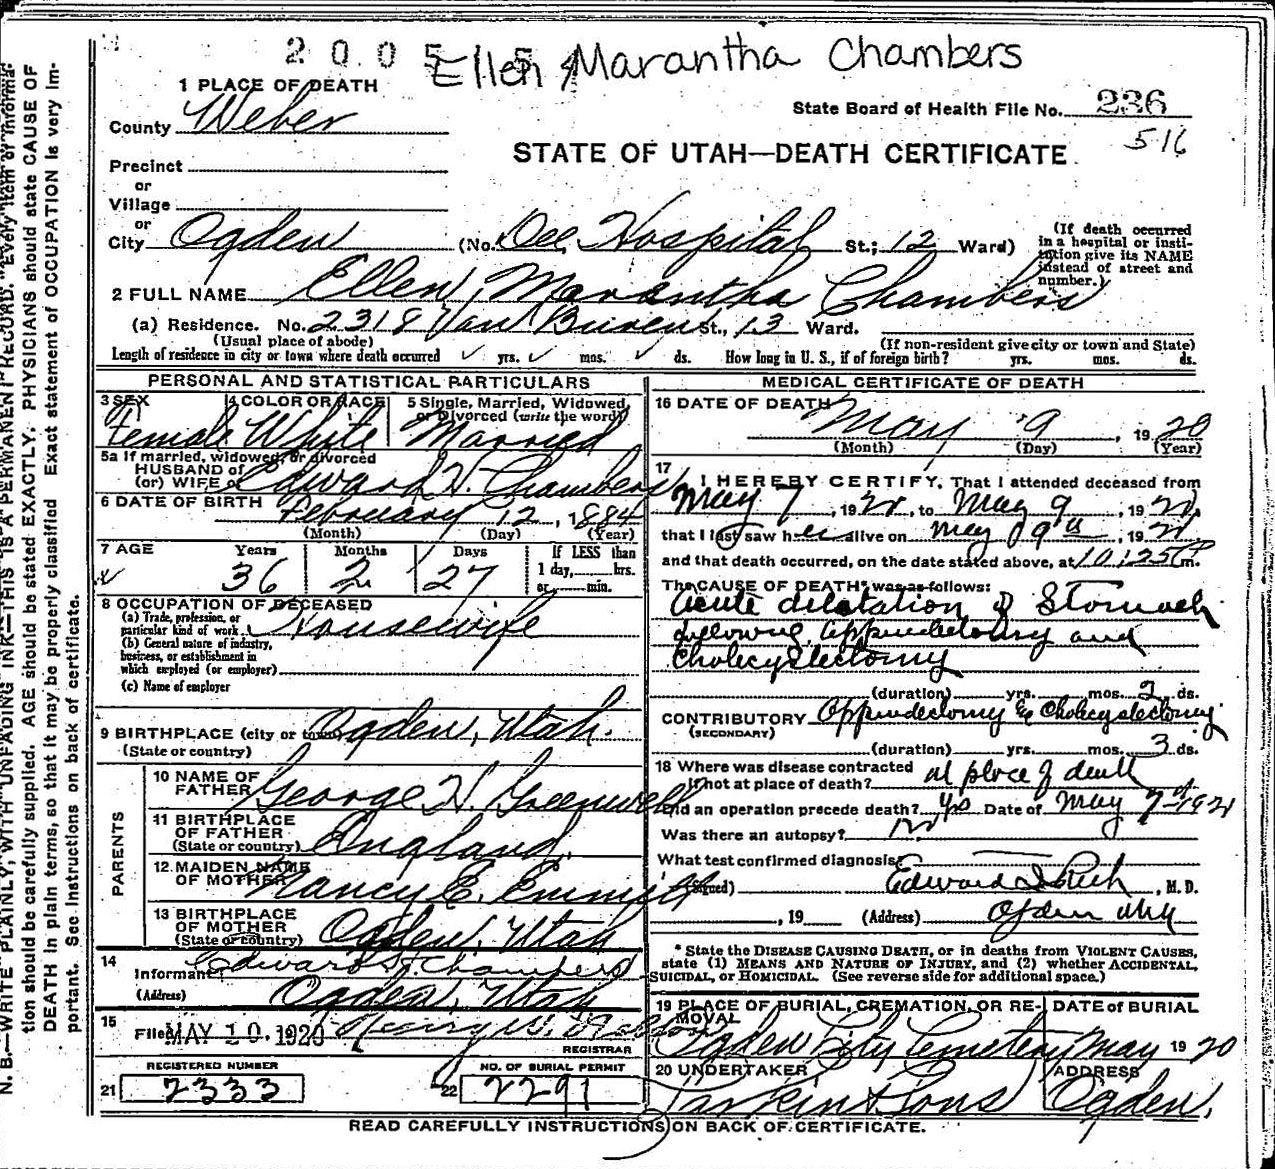 2 0 0 5 5 4
Ellen Marantha Chambers
1 PLACE OF DEATH
County Weber
State Board of Health File No. 236
516
STATE OF UTAH—DEATH CERTIFICATE
Precinct
or
Village
or
City Ogden (No. Dee Hospital St.; 12 Ward)
(If death occurred in a hospital or institution give its NAME instead of street and number.)
2 FULL NAME Ellen Marantha Chambers
(a) Residence. No. 2318 Van Buren St., 13 Ward.
(Usual place of abode) (If non-resident give city or town and State)
Length of residence in city or town where death occurred yrs. mos. ds. How long in U. S., if of foreign birth? yrs. mos. ds.
PERSONAL AND STATISTICAL PARTICULARS
3 SEX 4 COLOR OR RACE 5 Single, Married, Widowed, or Divorced (write the word)
Female White Married
5a If married, widowed, or divorced
HUSBAND of
(or) WIFE of Edward H. Chambers
6 DATE OF BIRTH February 12, 1884
(Month) (Day) (Year)
7 AGE Years Months Days If LESS than
36 2 27 1 day,......hrs.
or......min.
8 OCCUPATION OF DECEASED
(a) Trade, profession, or
particular kind of work Housewife
(b) General nature of industry,
business, or establishment in
which employed (or employer)
(c) Name of employer
9 BIRTHPLACE (city or town) Ogden, Utah.
(State or country)
PARENTS
10 NAME OF
FATHER George H. Greenwell
11 BIRTHPLACE
OF FATHER
(State or country) England.
12 MAIDEN NAME
OF MOTHER Nancy E. Emmett
13 BIRTHPLACE
OF MOTHER
(State or country) Ogden, Utah
14
Informant Edward H. Chambers
(Address) Ogden, Utah
15
Filed MAY 10 1920 Henry W.
REGISTRAR
REGISTERED NUMBER NO. OF BURIAL PERMIT
21 2333 22 2291
MEDICAL CERTIFICATE OF DEATH
16 DATE OF DEATH
May 9, 1920
(Month) (Day) (Year)
17
I HEREBY CERTIFY, That I attended deceased from
May 7, 192, to May 9, 192
that I last saw her alive on May 9th, 192
and that death occurred, on the date stated above, at 10:25 P m.
The CAUSE OF DEATH* was as follows:
Acute dilatation of Stomach
following appendectomy and
Cholecystectomy
(duration) yrs. mos. 2 ds.
CONTRIBUTORY Appendectomy & Cholecystectomy
(SECONDARY)
(duration) yrs. mos. 3 ds.
18 Where was disease contracted
if not at place of death? at place of death
Did an operation precede death? yes Date of May 7th 1921
Was there an autopsy? no
What test confirmed diagnosis?
(Signed) Edward I Rich, M.D.
, 19 (Address) Ogden Utah
* State the DISEASE CAUSING DEATH, or in deaths from VIOLENT CAUSES,
state (1) MEANS AND NATURE OF INJURY, and (2) whether ACCIDENTAL,
SUICIDAL, or HOMICIDAL. (See reverse side for additional space.)
19 PLACE OF BURIAL, CREMATION, OR REMOVAL DATE of BURIAL
Ogden City Cemetery May 1920
20 UNDERTAKER ADDRESS
Larkin & Sons Ogden.
READ CAREFULLY INSTRUCTIONS ON BACK OF CERTIFICATE.
N. B.—WRITE PLAINLY, WITH UNFADING INK—THIS IS A PERMANENT RECORD. Every item of informa-
tion should be carefully supplied. AGE should be stated EXACTLY. PHYSICIANS should state CAUSE OF
DEATH in plain terms, so that it may be properly classified Exact statement of OCCUPATION is very im-
portant. See Instructions on back of certificate.